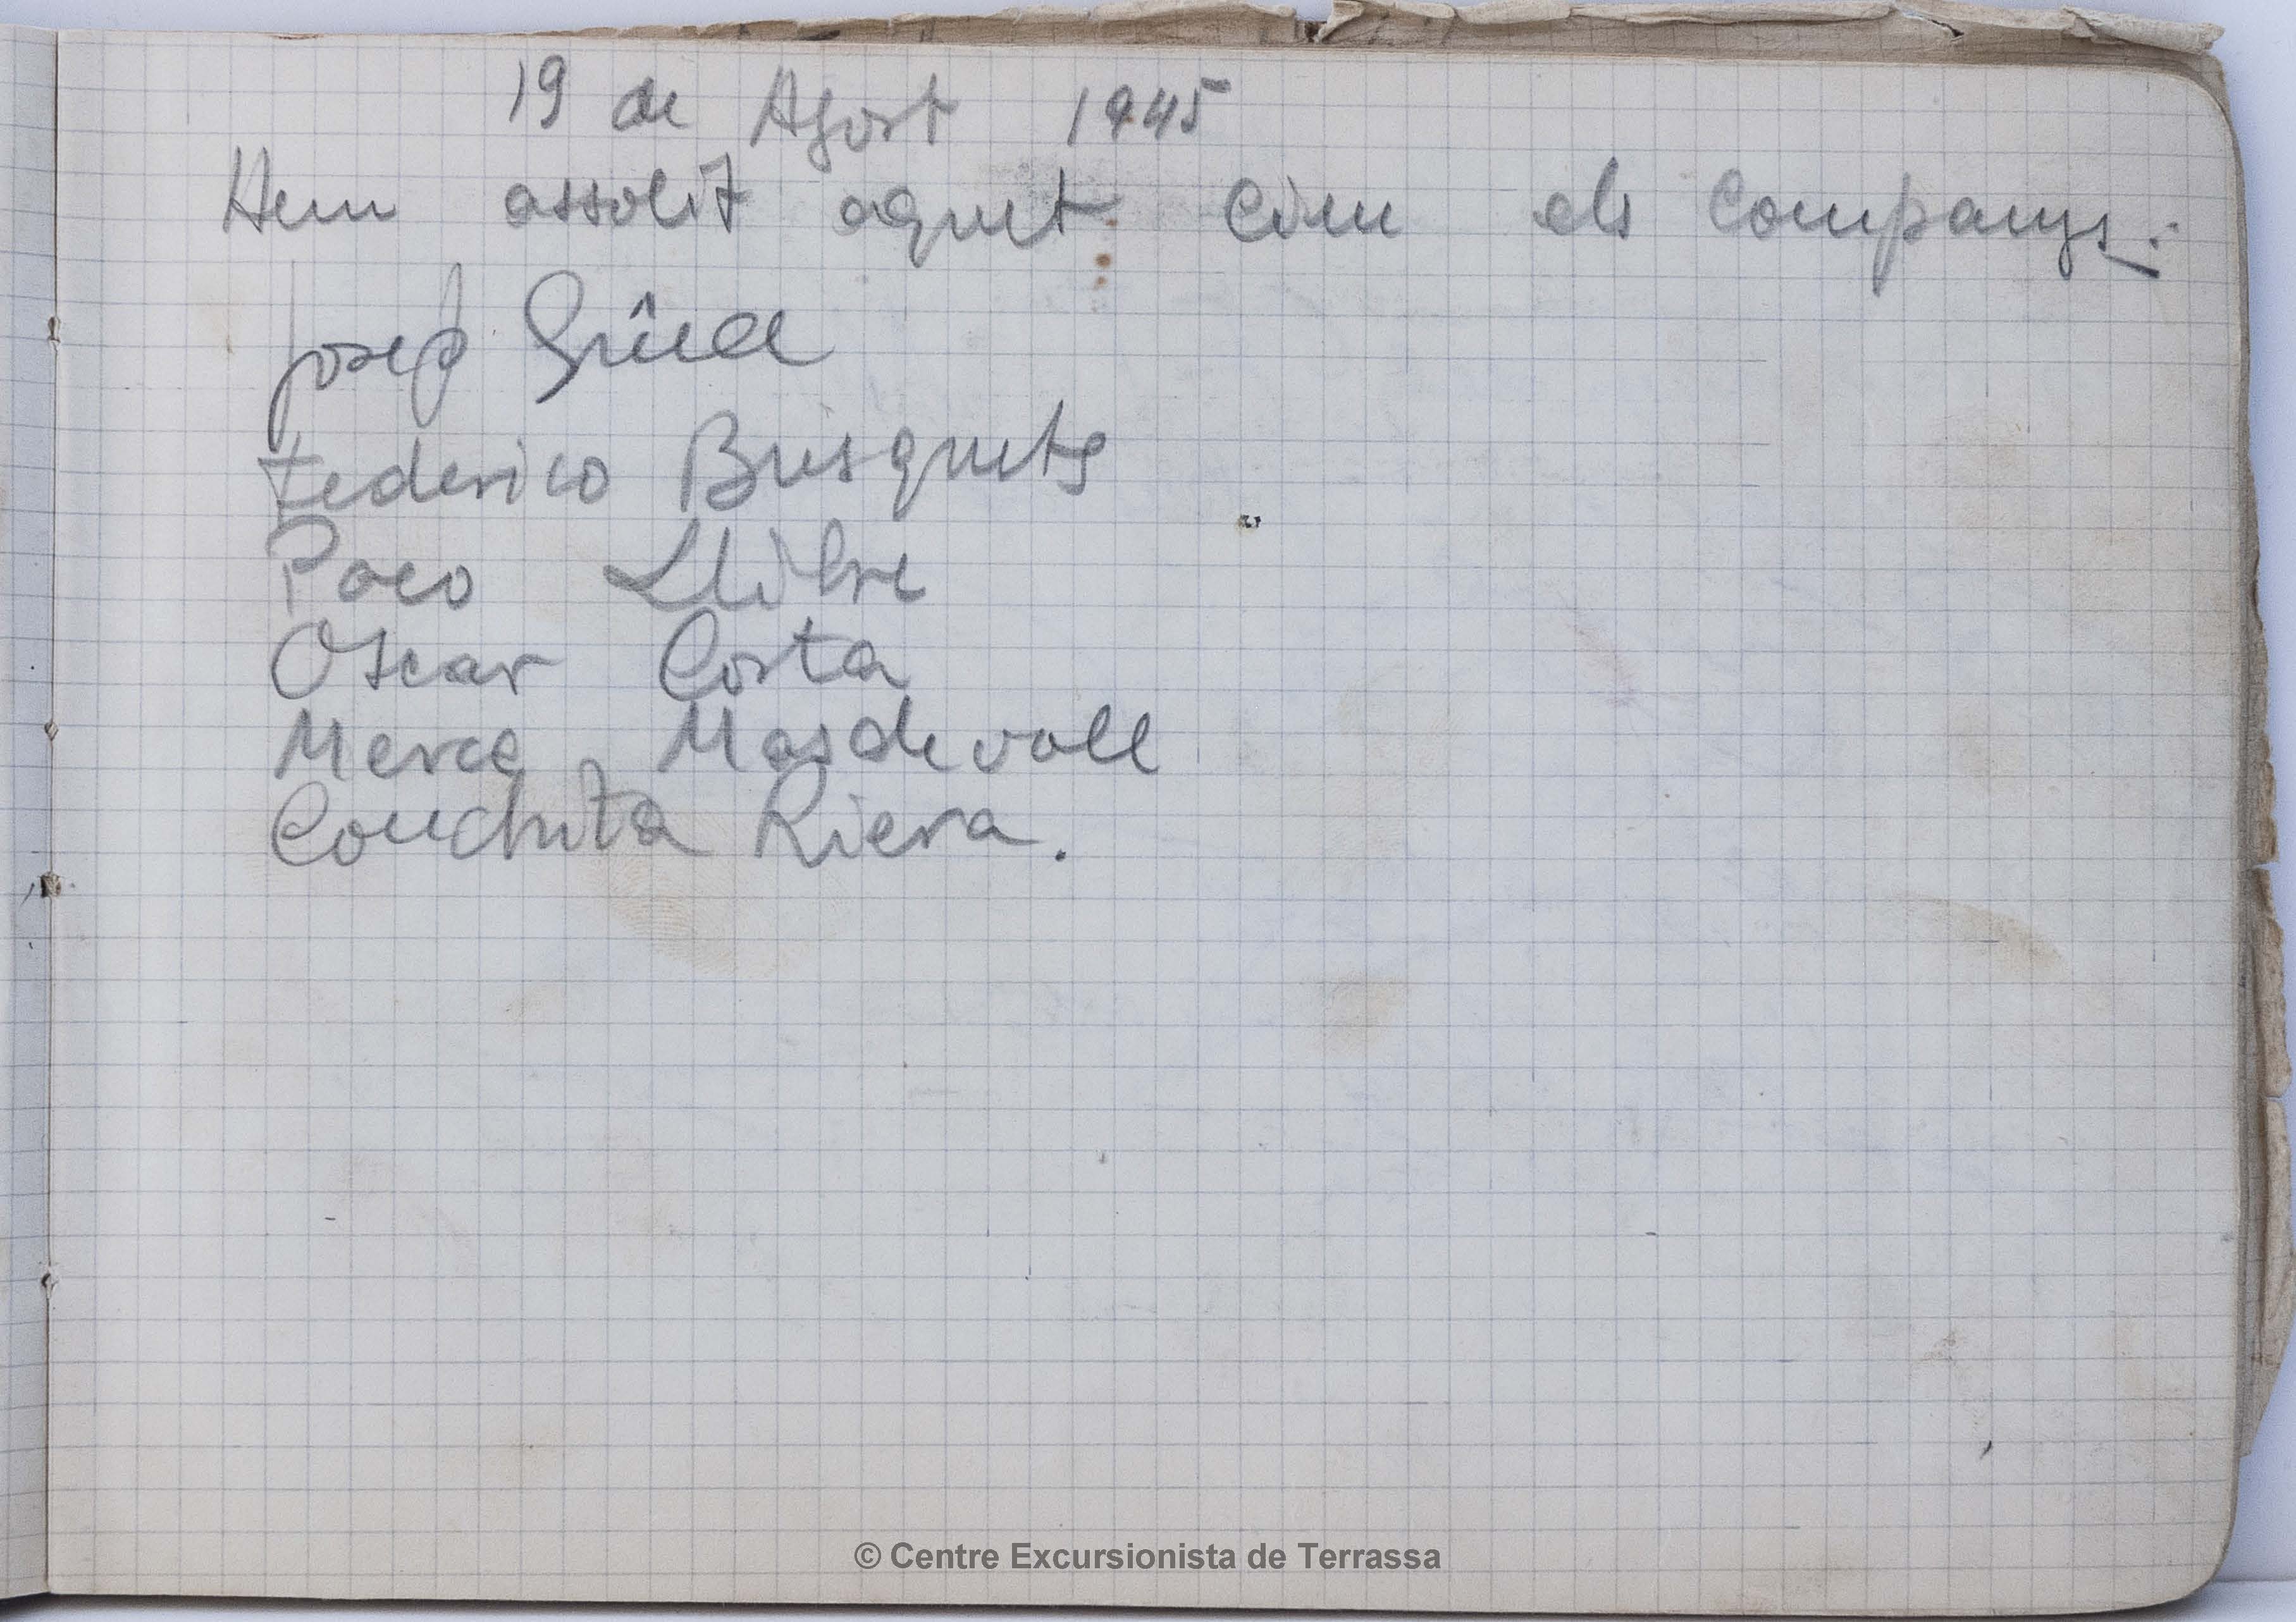 19 de Agost 1945
Hem assolit aquet cim els companys:
Josep Grûell
Federico Busquets
Paco Llibre
Oscar Costa
Merce Masdevall
Conchita Riera.
© Centre Excursionista de Terrassa